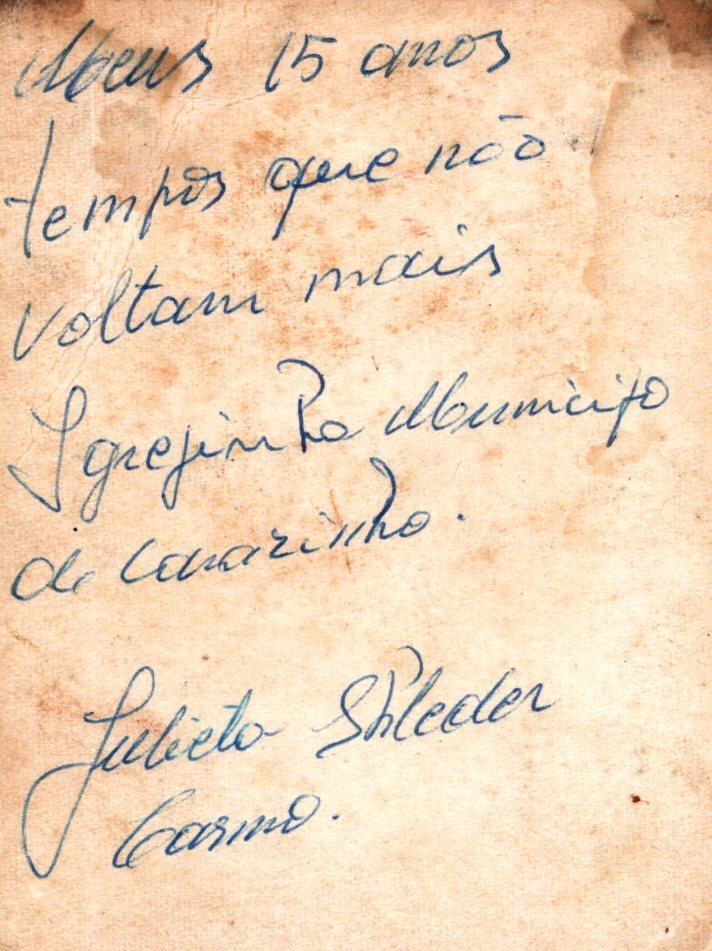 Meus 15 anos
tempos que não
voltam mais
Igrejinha Municipo
de Carazinho.
Julieta Shleder
Carmo.